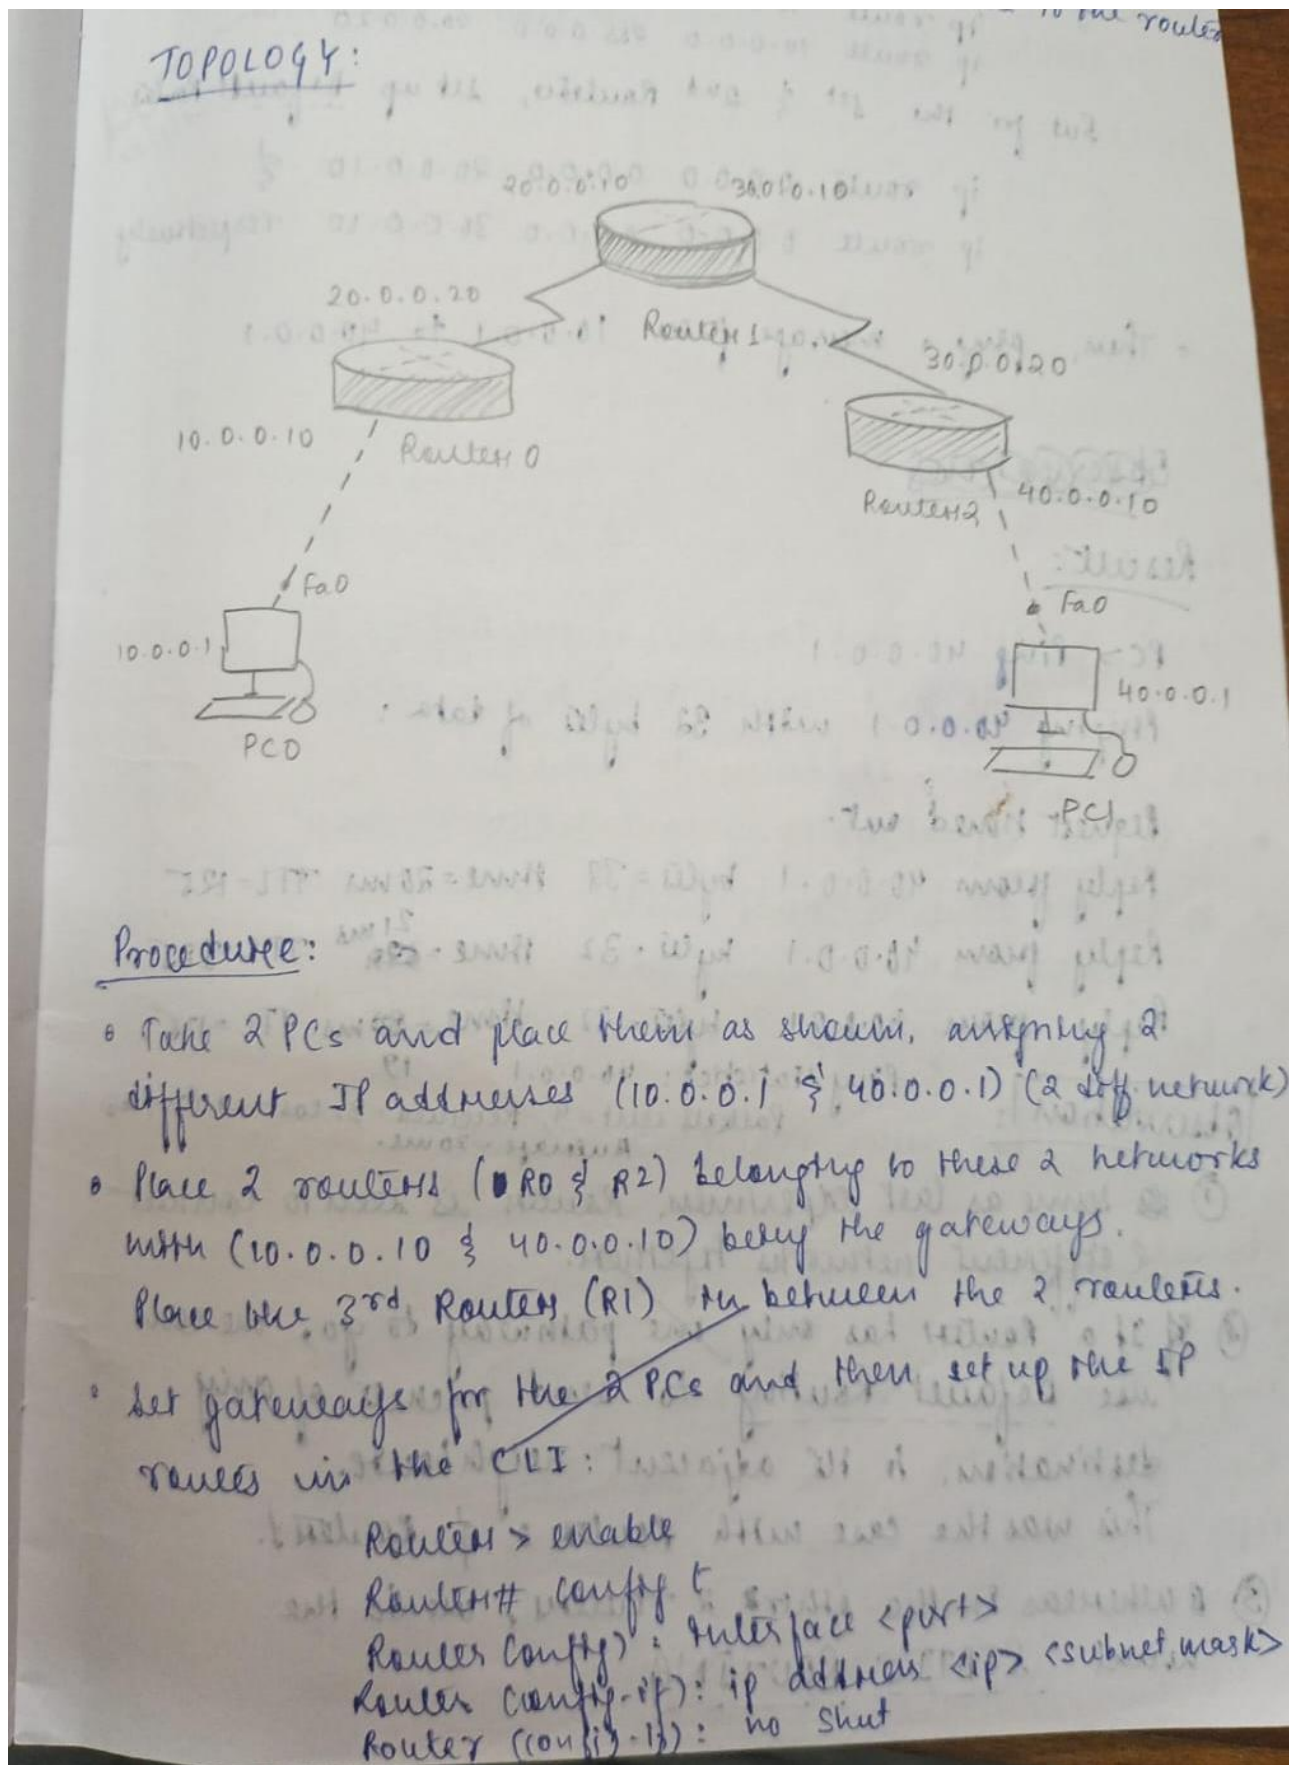 to the router
TOPOLOGY:
20.0.0.10 30.0.0.10
20.0.0.20
Router 1
30.0.0.20
10.0.0.10
Router 0
Router 2
40.0.0.10
Fa0
Fa0
10.0.0.1
40.0.0.1
PC0
PC1
Procedure:
Take 2 PCs and place them as shown, assigning 2
different IP addresses (10.0.0.1 & 40.0.0.1) (2 diff. network)
Place 2 routers (R0 & R2) belonging to these 2 networks
with (10.0.0.10 & 40.0.0.10) being the gateways.
Place the 3rd Router (R1) in between the 2 routers.
Set gateways for the 2 PCs and then set up the IP
routes in the CLI:
Router > enable
Router# config t
Router config) : interface <port>
Router config-if) : ip address <ip> <subnet mask>
Router (config-if) : no shut